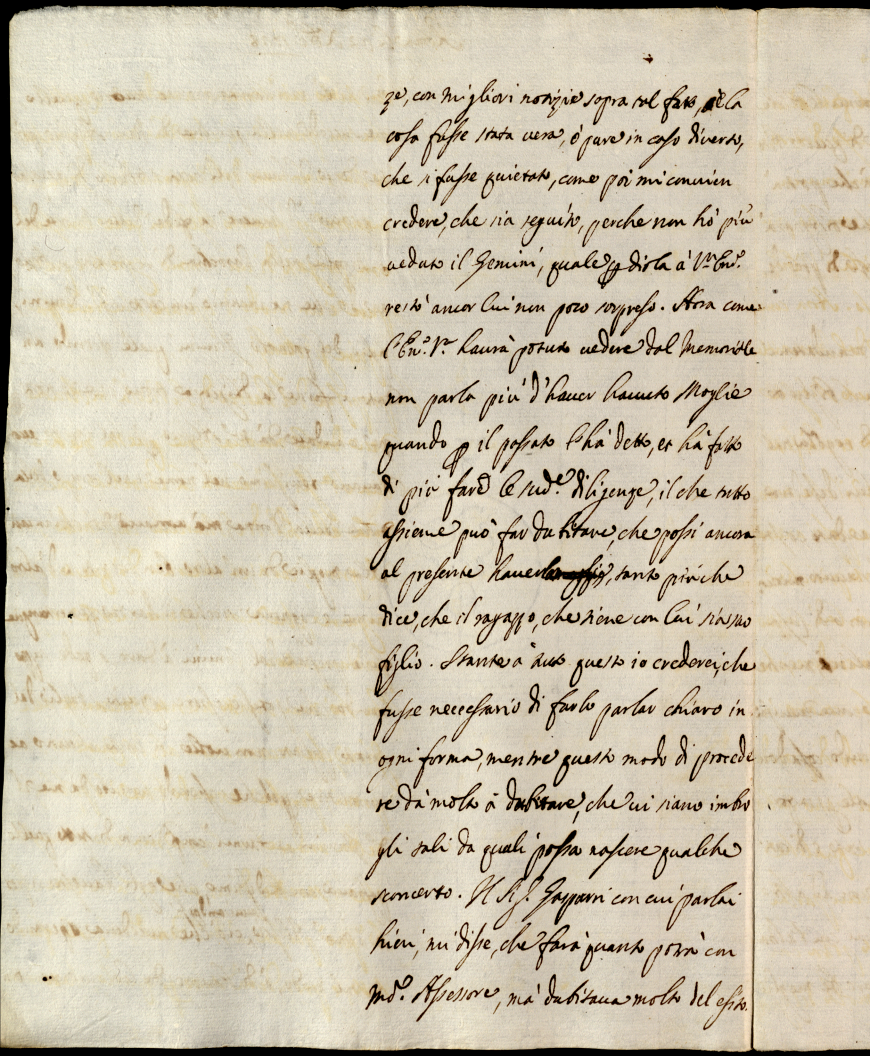 ze, con migliori notizie sopra tal fatto, se la
cosa fusse stata vera, ò pure in caso diverso,
che si fusse quietato, come poi mi convien
credere, che sia seguito, perche non hò più
veduto il Gemini, quale dirla à V.ra Em.
restò ancor lui non poco sorpreso. Hora come
l'Em. V.ra haurà potuto vedere dal Memoriale
non parla più d'haver havuto Moglie
quando il passato l'hà detto, et hà fatto
di più fare le sud.e diligenze, il che tutto
assieme può far dubitare, che possi ancora
al presente haver, tanto più che
dice, che il ragazzo, che tiene con lui sia suo
figlio. Stante à tutto questo io crederei, che
fusse necessario di farlo parlar chiaro in
ogni forma, mentre questo modo di procede
re dà molto à dubitare, che vi siano imbro
gli tali da quali possa nascere qualche
sconcerto. Il Sig. Gasparri con cui parlai
hieri, mi disse, che farà quanto potrà con
Assessore, mà dubitava molto del esito.